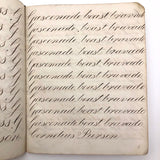 Gasconade boast bravado
Gasconade boast bravado
Gasconade boast bravado
Gasconade boast bravado
Gasconade boast bravado
Gasconade boast bravado
Gasconade boast bravado
Gasconade boast bravado
Gasconade boast bravado
Cornelius Pierson